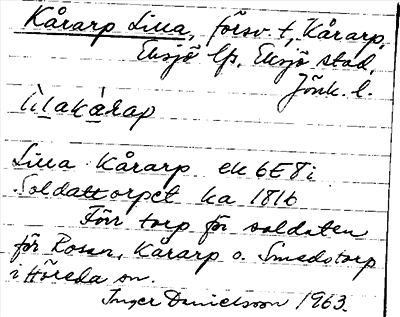 Kårarp Lilla, försv. t, Kårarp,
Eksjö lfs, Eksjö stad,
Jönk. l.
lìlakàrap
Lilla Kårarp ek 6E8i
Soldattorpet ka 1816
Förr torp för soldaten
för Rosen, Kårarp o. Smedstorp
i Höreda sn.
Inger Danielsson 1963.